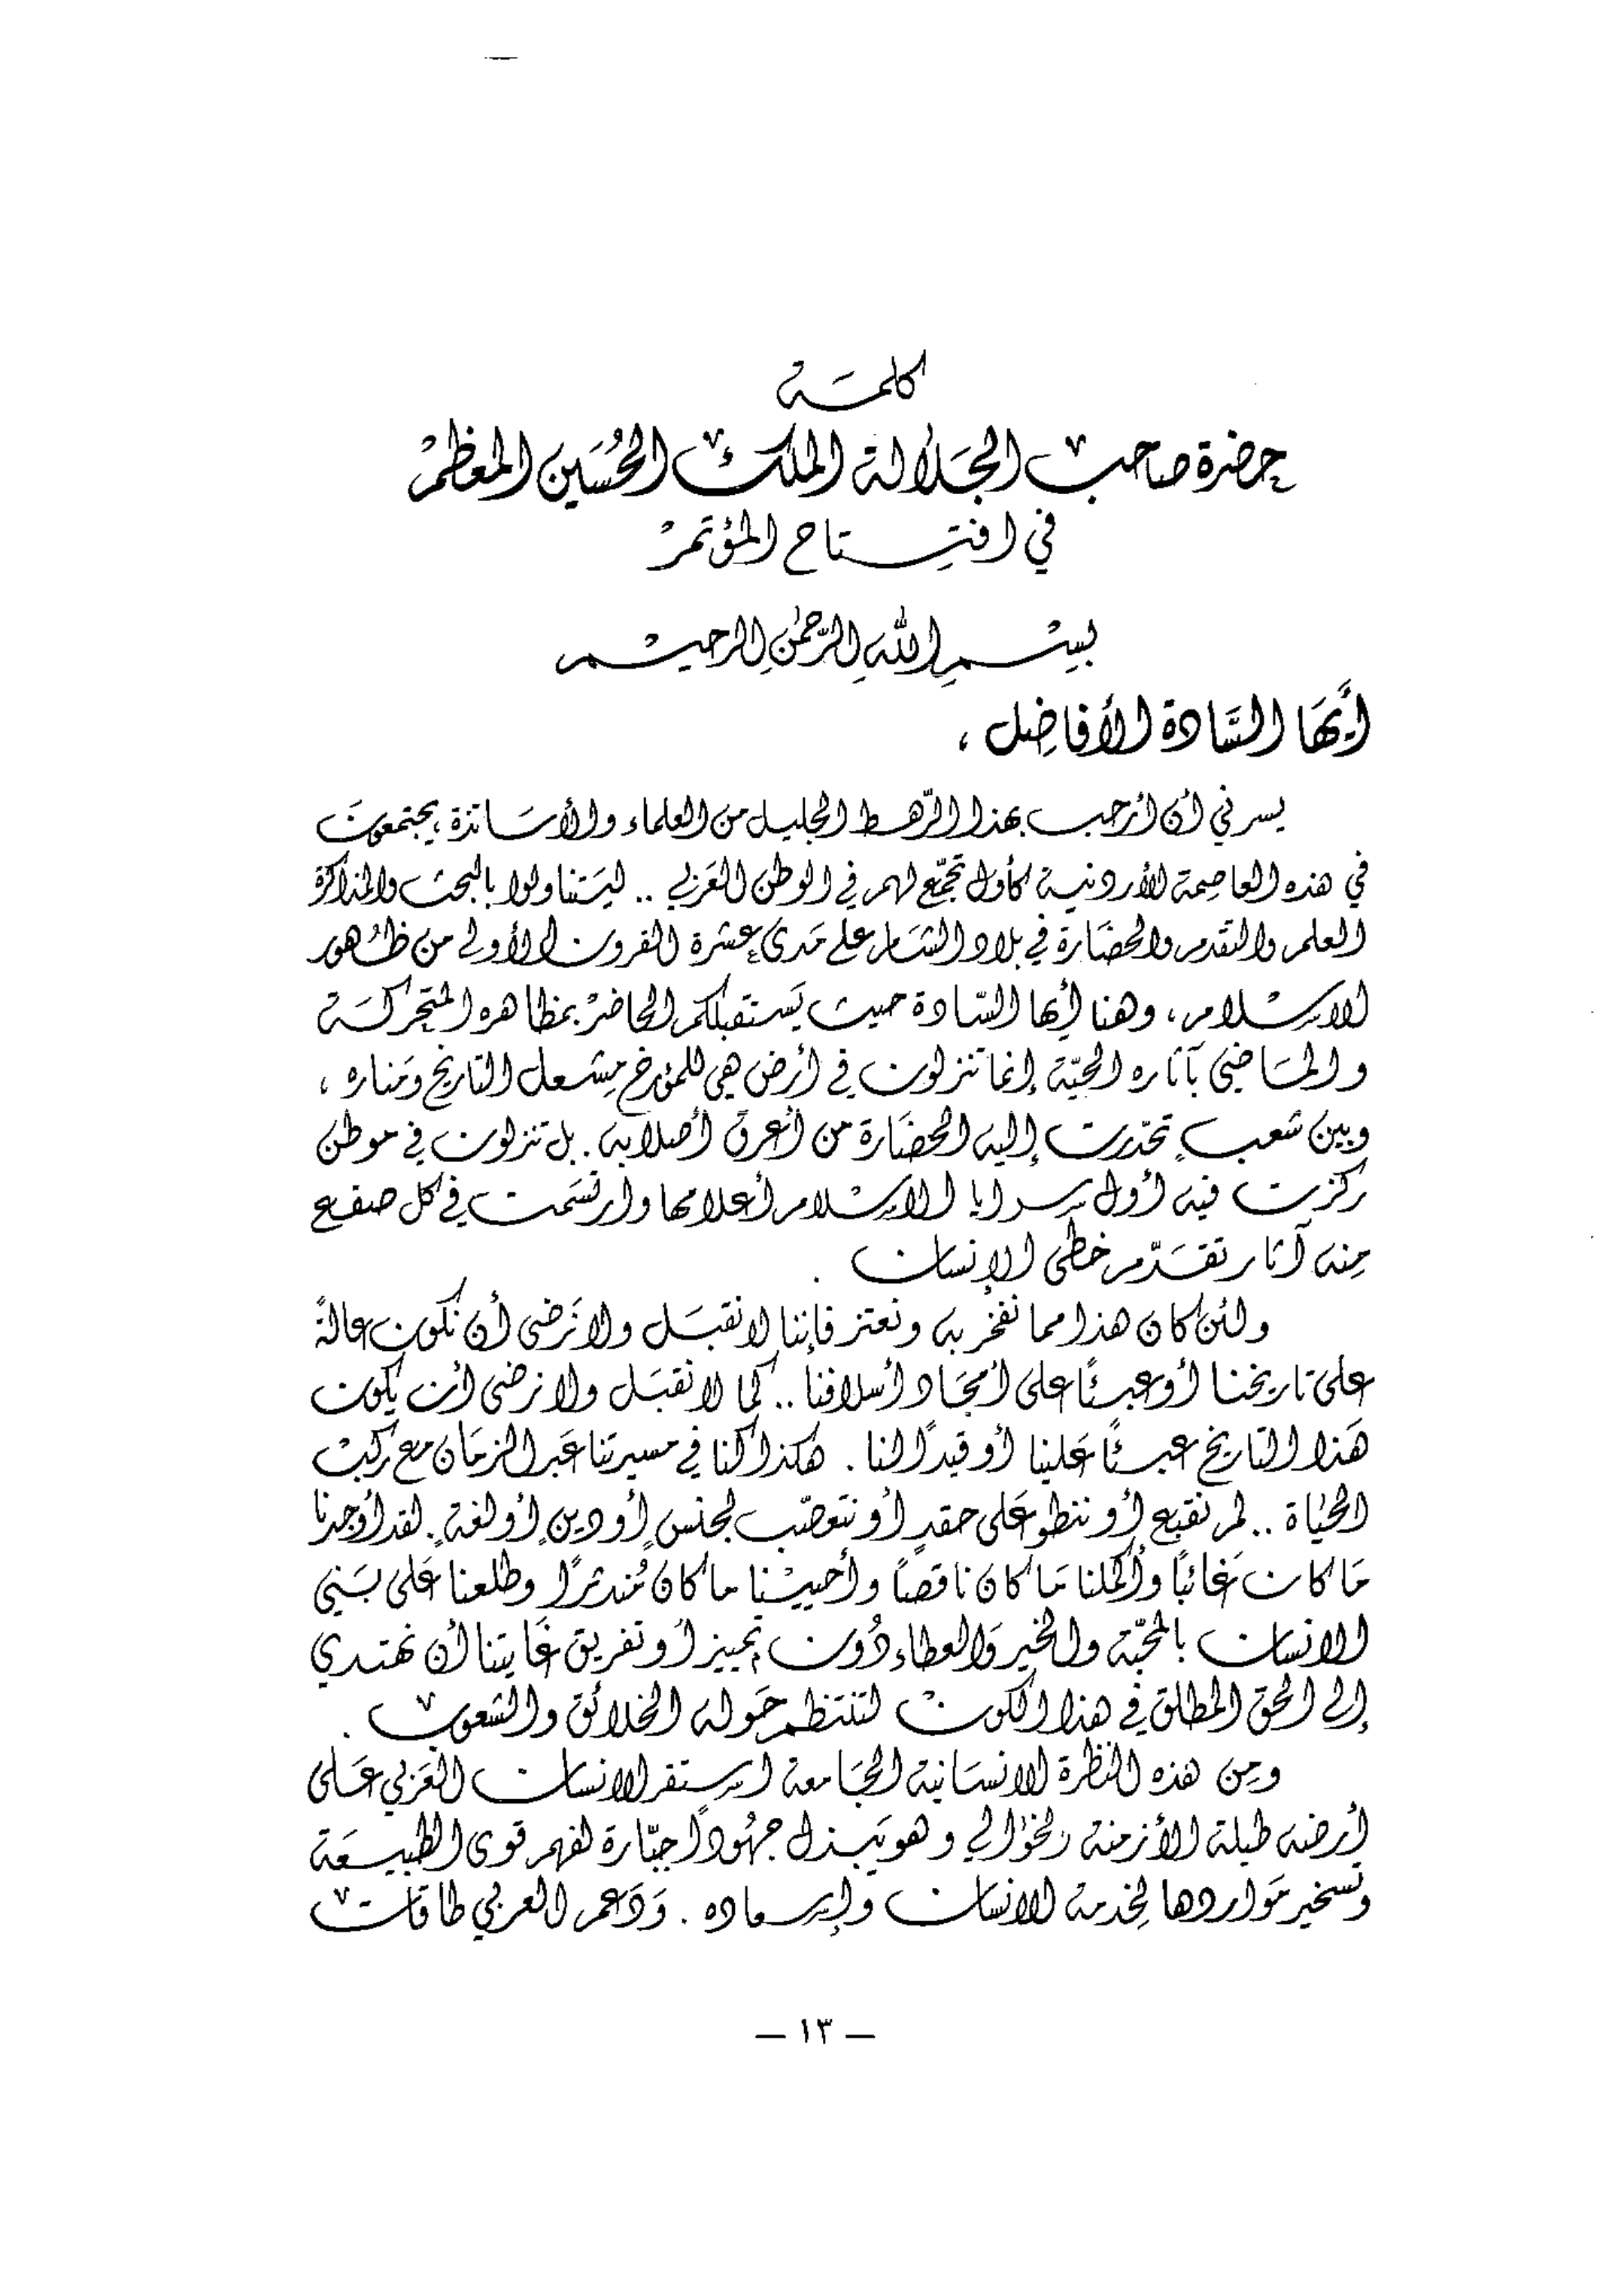 كلمة
حضرة صاحب الجلالة الملك الحسين المعظم
في افتتاح المؤتمر
بسم الله الرحمن الرحيم
أيها السادة الأفاضل ،
يسرني أن أرحب بهذا الرهط الجليل من العلماء والأساتذة ، يجتمعون
في هذه العاصمة الأردنية كأول تجمّع لهم في الوطن العربي .. ليتناولوا بالبحث والمذاكرة
العلم والتقدم والحضارة في بلاد الشام على مدى عشرة القرون الأولى من ظهور
الاسلام ، وهنا أيها السادة حيث يستقبلكم الحاضر بمظاهره المتحركة
والماضي بآثاره الحيّة إنما تنزلون في أرض هي للمؤرخ مشعل التاريخ ومناره ،
وبين شعبٍ تحدرت إليه الحضارة من أعرق أصلابه . بل تنزلون في موطن
ركزت فيه أول سرايا الاسلام أعلامها وارتسمت في كل صقع
منه آثار تقدّم خطى الإنسان .
ولئن كان هذا مما نفخر به ونعتز فإننا لا نقبل ولا نرضى أن نكون عالةً
على تاريخنا أو عبئاً على أمجاد أسلافنا .. كما لا نقبل ولا نرضى أن يكون
هذا التاريخ عبئاً علينا أو قيداً لنا . هكذا كنا في مسيرتنا عبر الزمان مع ركب
الحياة .. لم نقبع أو ننطو على حقدٍ أو نتعصّب لجنسٍ أو دينٍ أو لغةٍ . لقد أوجدنا
ما كان غائباً وأكملنا ما كان ناقصاً وأحيينا ما كان مندثراً وطلعنا على بني
الانسان بالمحبّة والخير والعطاء دون تمييز أو تفريق غايتنا أن نهتدي
إلى الحق المطلق في هذا الكون لتنتظم حوله الخلائق والشعوب .
ومن هذه النظرة الانسانية الجامعة استقر الانسان العربي على
أرضه طيلة الأزمنة الخوالي وهو يبذل جهوداً جبّارة لفهم قوى الطبيعة
وتسخير مواردها لخدمة الانسان وإسعاده . ودعم العربي طاقات
— ١٣ —